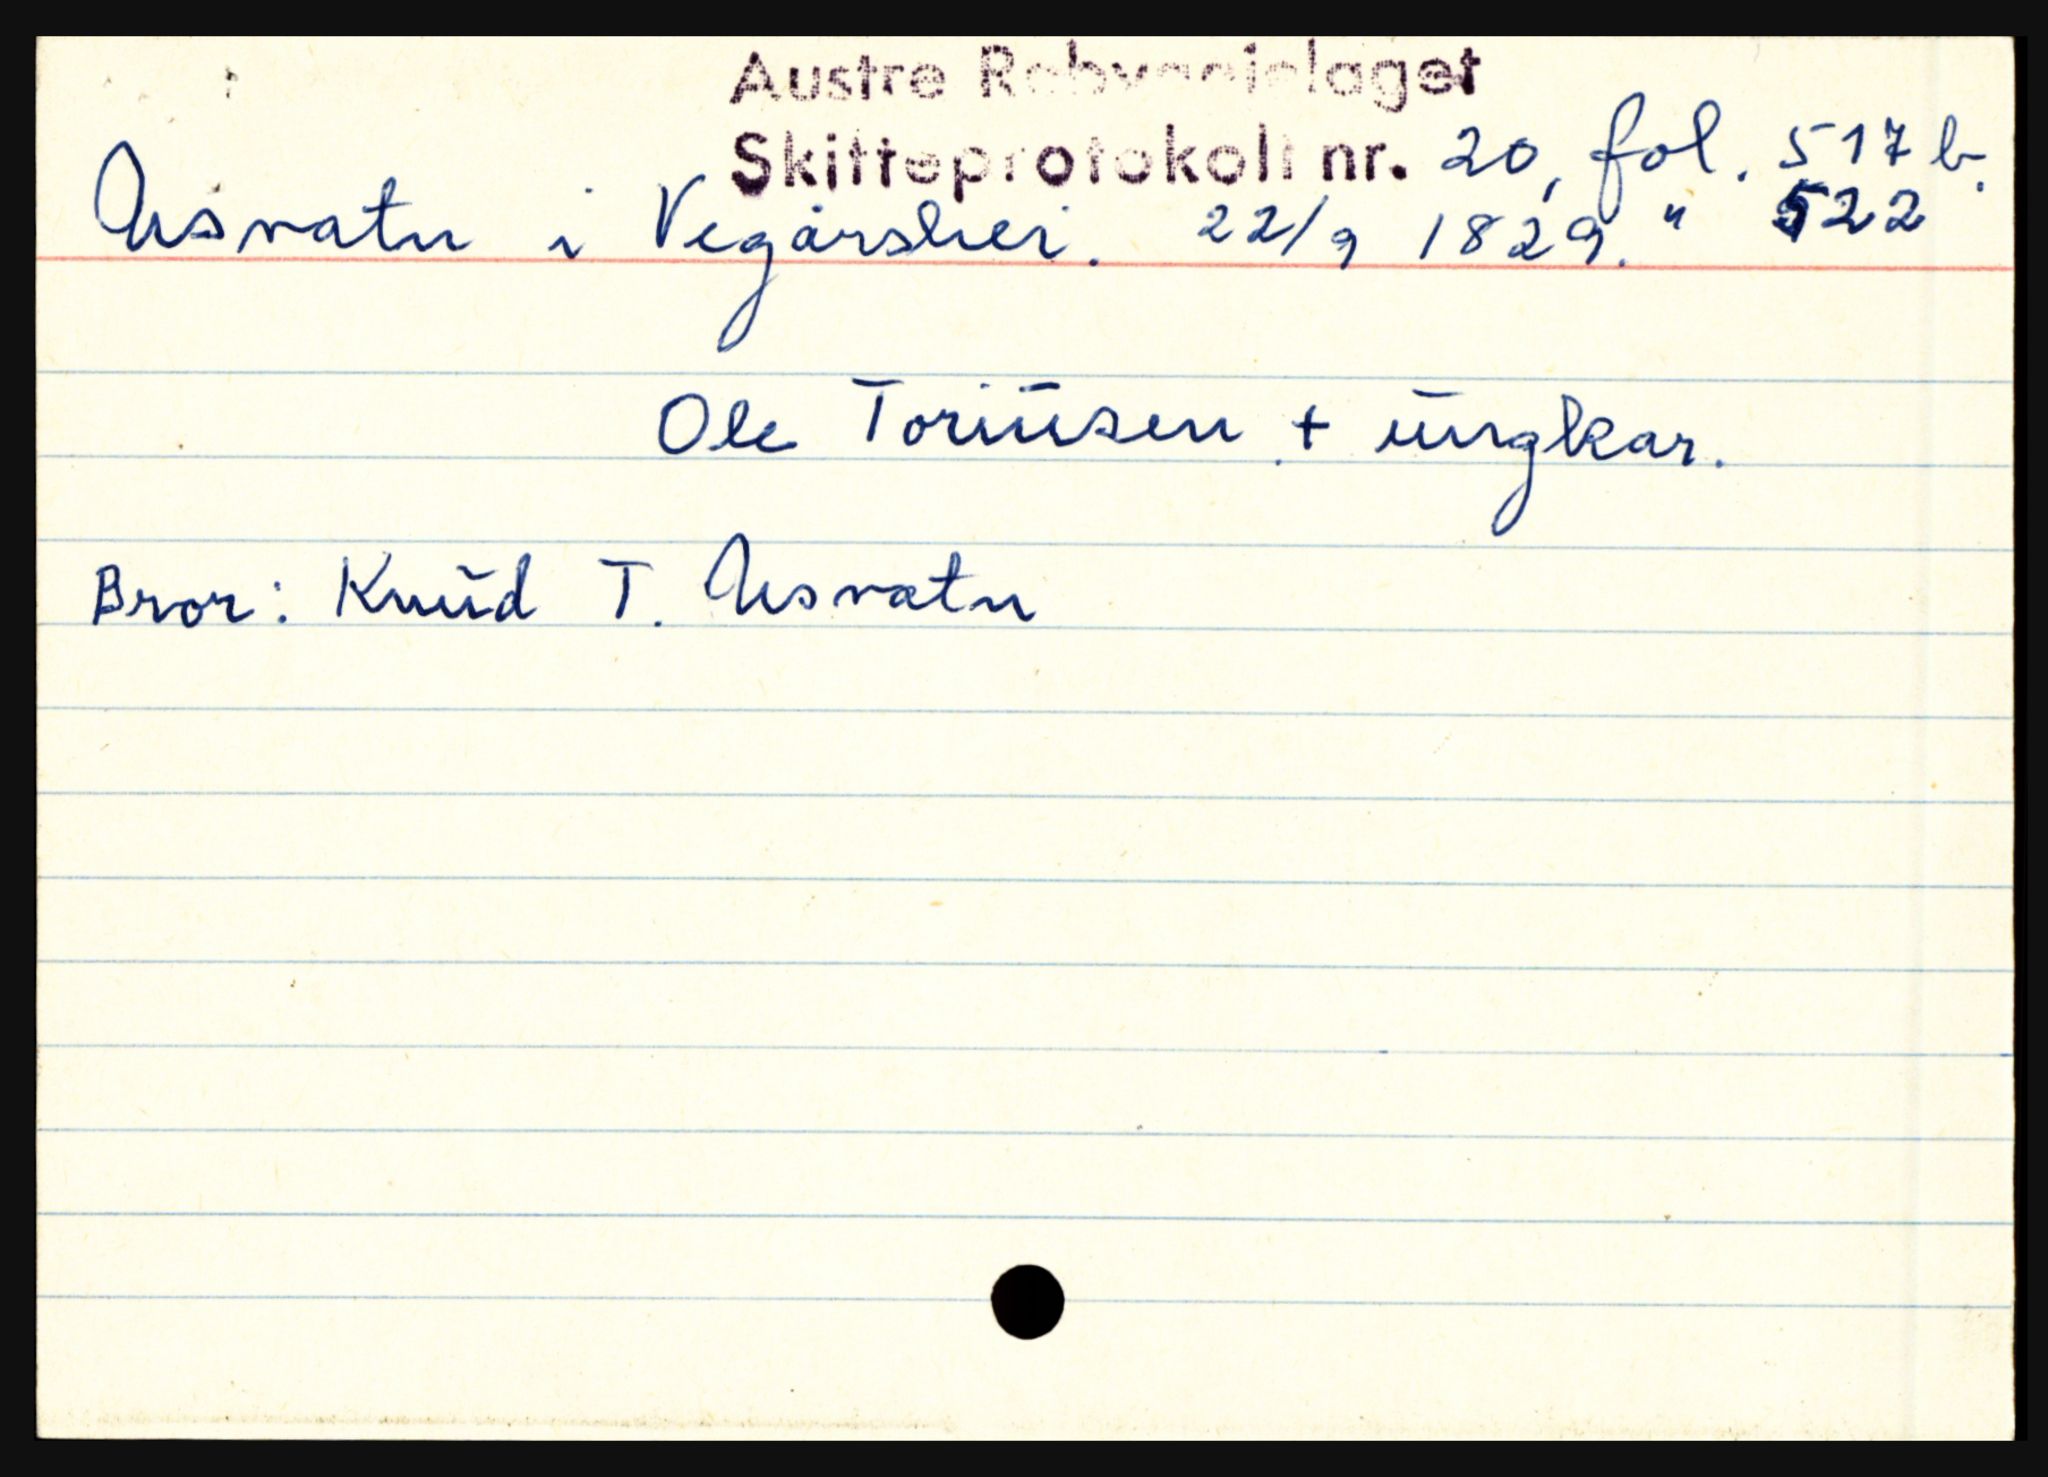 Austre Robyggjelaget
Skifteprotokoll nr. 20, fol. 517 b.
Usvatn i Vegårshei. 22/9 1829. " 522
Ole Toriusen + ungkar.
Bror: Knud T. Usvatn